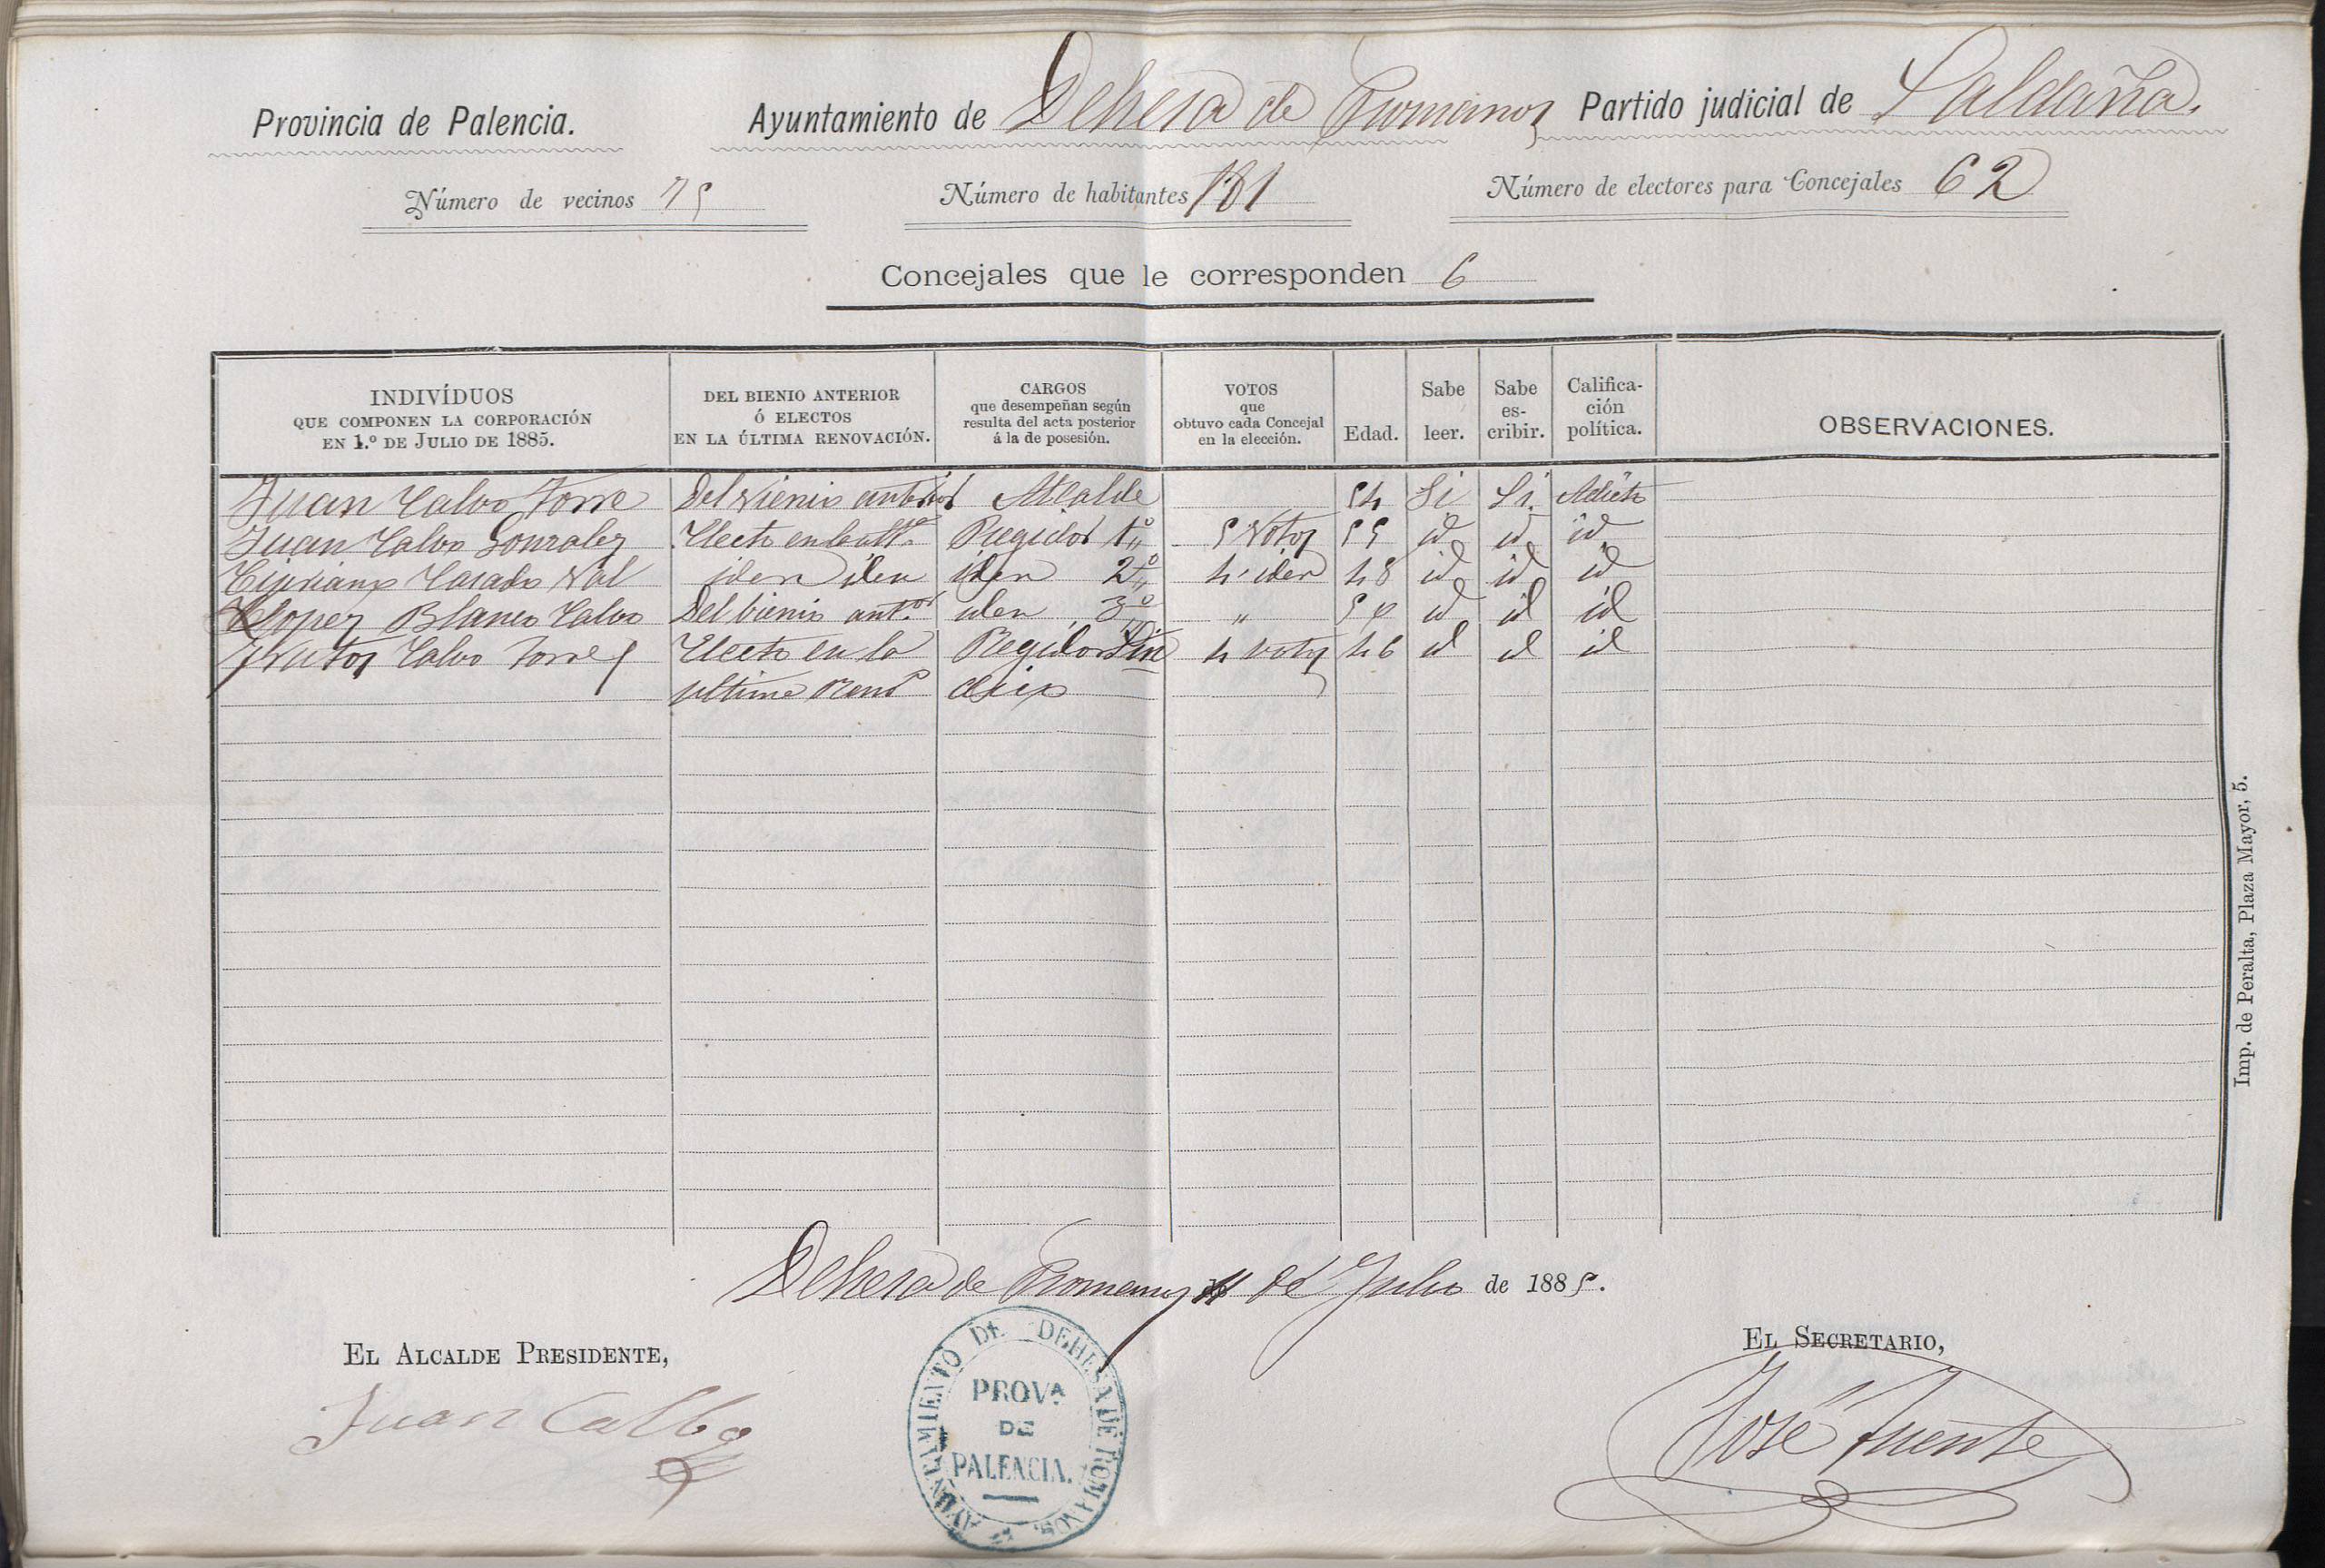 Provincia de Palencia. Ayuntamiento de Dehesa de Romanos Partido judicial de Saldaña.
Número de vecinos 75 Número de habitantes 181 Número de electores para Concejales 62
Concejales que le corresponden 6
INDIVÍDUOS QUE COMPONEN LA CORPORACIÓN EN 1.º DE JULIO DE 1885. DEL BIENIO ANTERIOR Ó ELECTOS EN LA ÚLTIMA RENOVACIÓN. CARGOS que desempeñan según resulta del acta posterior á la de posesión. VOTOS que obtuvo cada Concejal en la elección. Edad. Sabe leer. Sabe es-cribir. Califica-ción política. OBSERVACIONES.
Juan Calvo Torre Del vienio anterior Alcalde 54 Si Si. Adicto
Juan Calvo Gonzalez Electo en la ultª Regidor 1º 5 Votos 55 id id id
Cipriano Casado Val iden iden iden 2º 4 iden 48 id id id
Lopez Blanco Calvo Del bienio antor iden 3º " id id id
Frutos Calvo Torres Electo en la Regidor Sin 4 votos 46 id id id
ultima Renon dico
Dehesa de Romanos 11 de Julio de 1885.
EL ALCALDE PRESIDENTE, EL SECRETARIO,
Juan Calbo José Fuente
AYUNTAMIENTO DE DEHESA DE ROMANOS.
PROVA
DE
PALENCIA.
Imp. de Peralta, Plaza Mayor, 5.